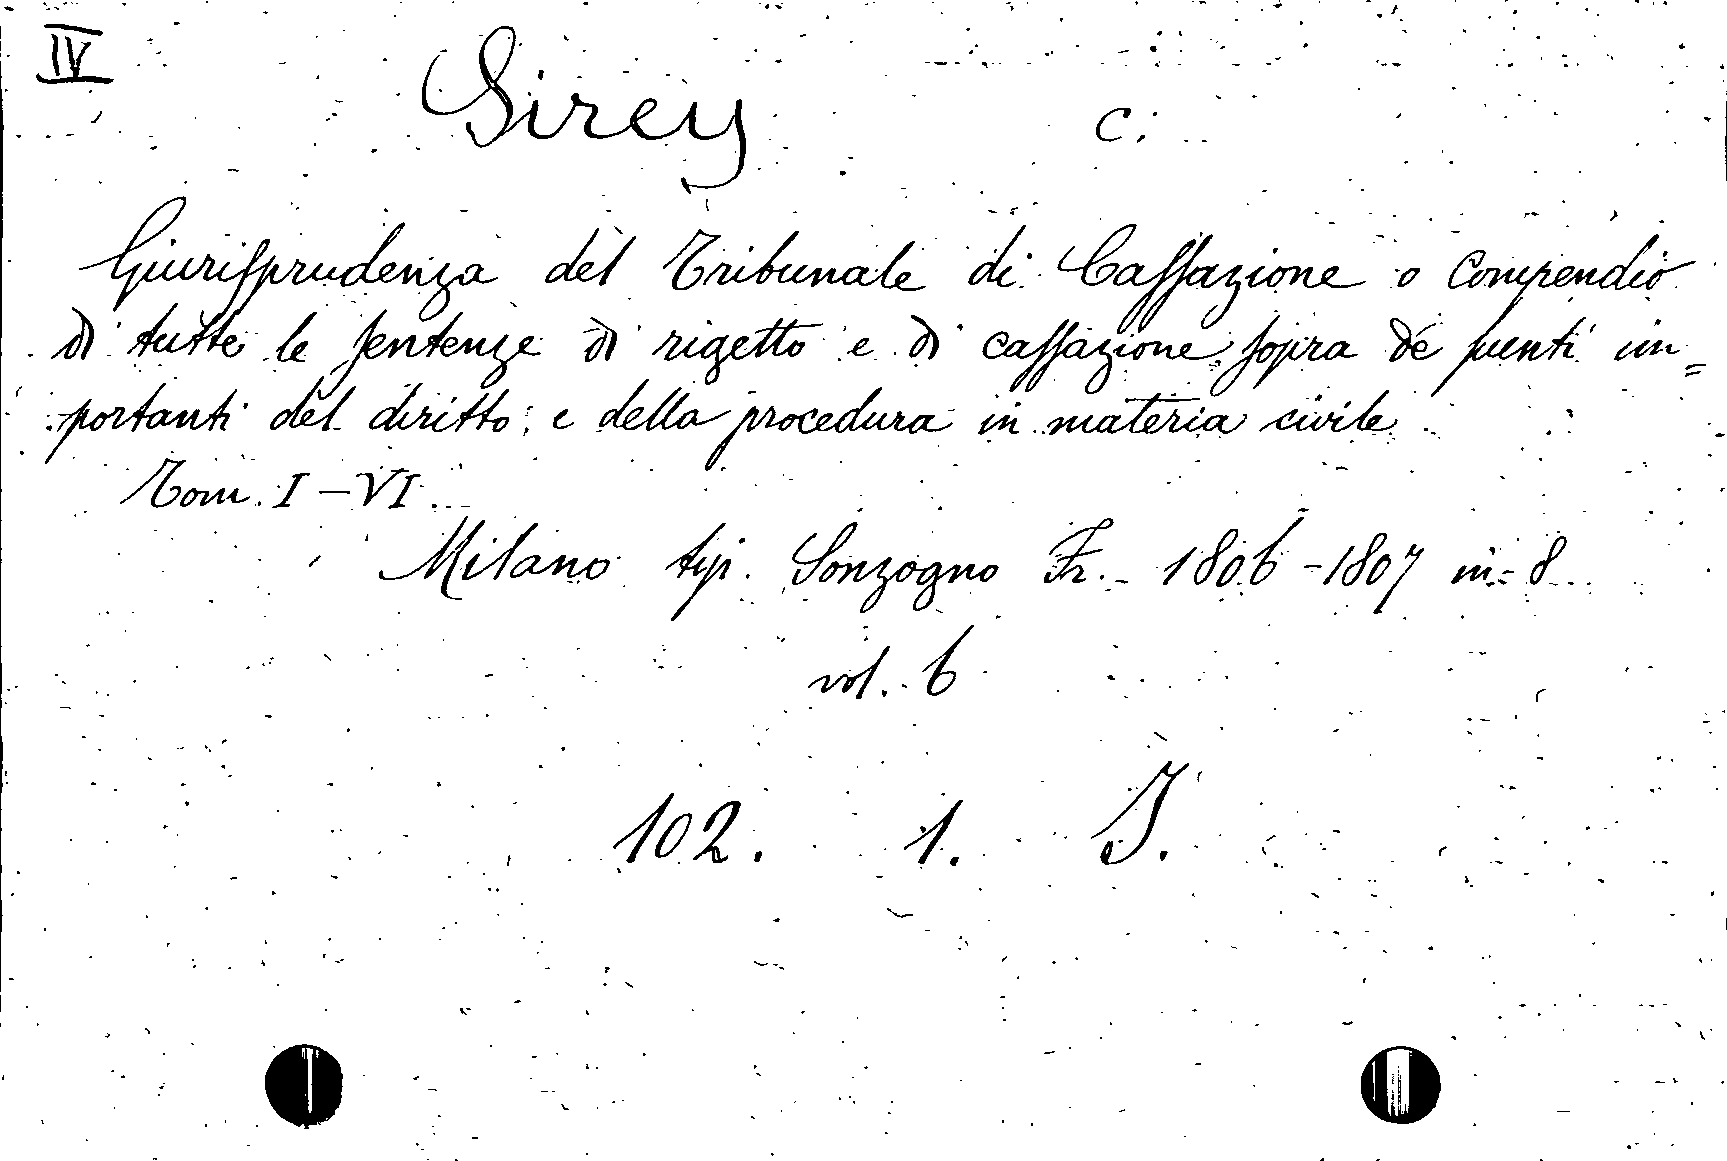 IV
Sirey C.
Giurisprudenza del Tribunale di Cassazione o Compendio
di tutte le sentenze di rigetto e di cassazione sopra de' punti im=
portanti del diritto e della procedura in materia civile
Tom. I – VI.
Milano tip. Sonzogno Fr. - 1806 - 1807 in = 8
vol. 6
102. 1. J.